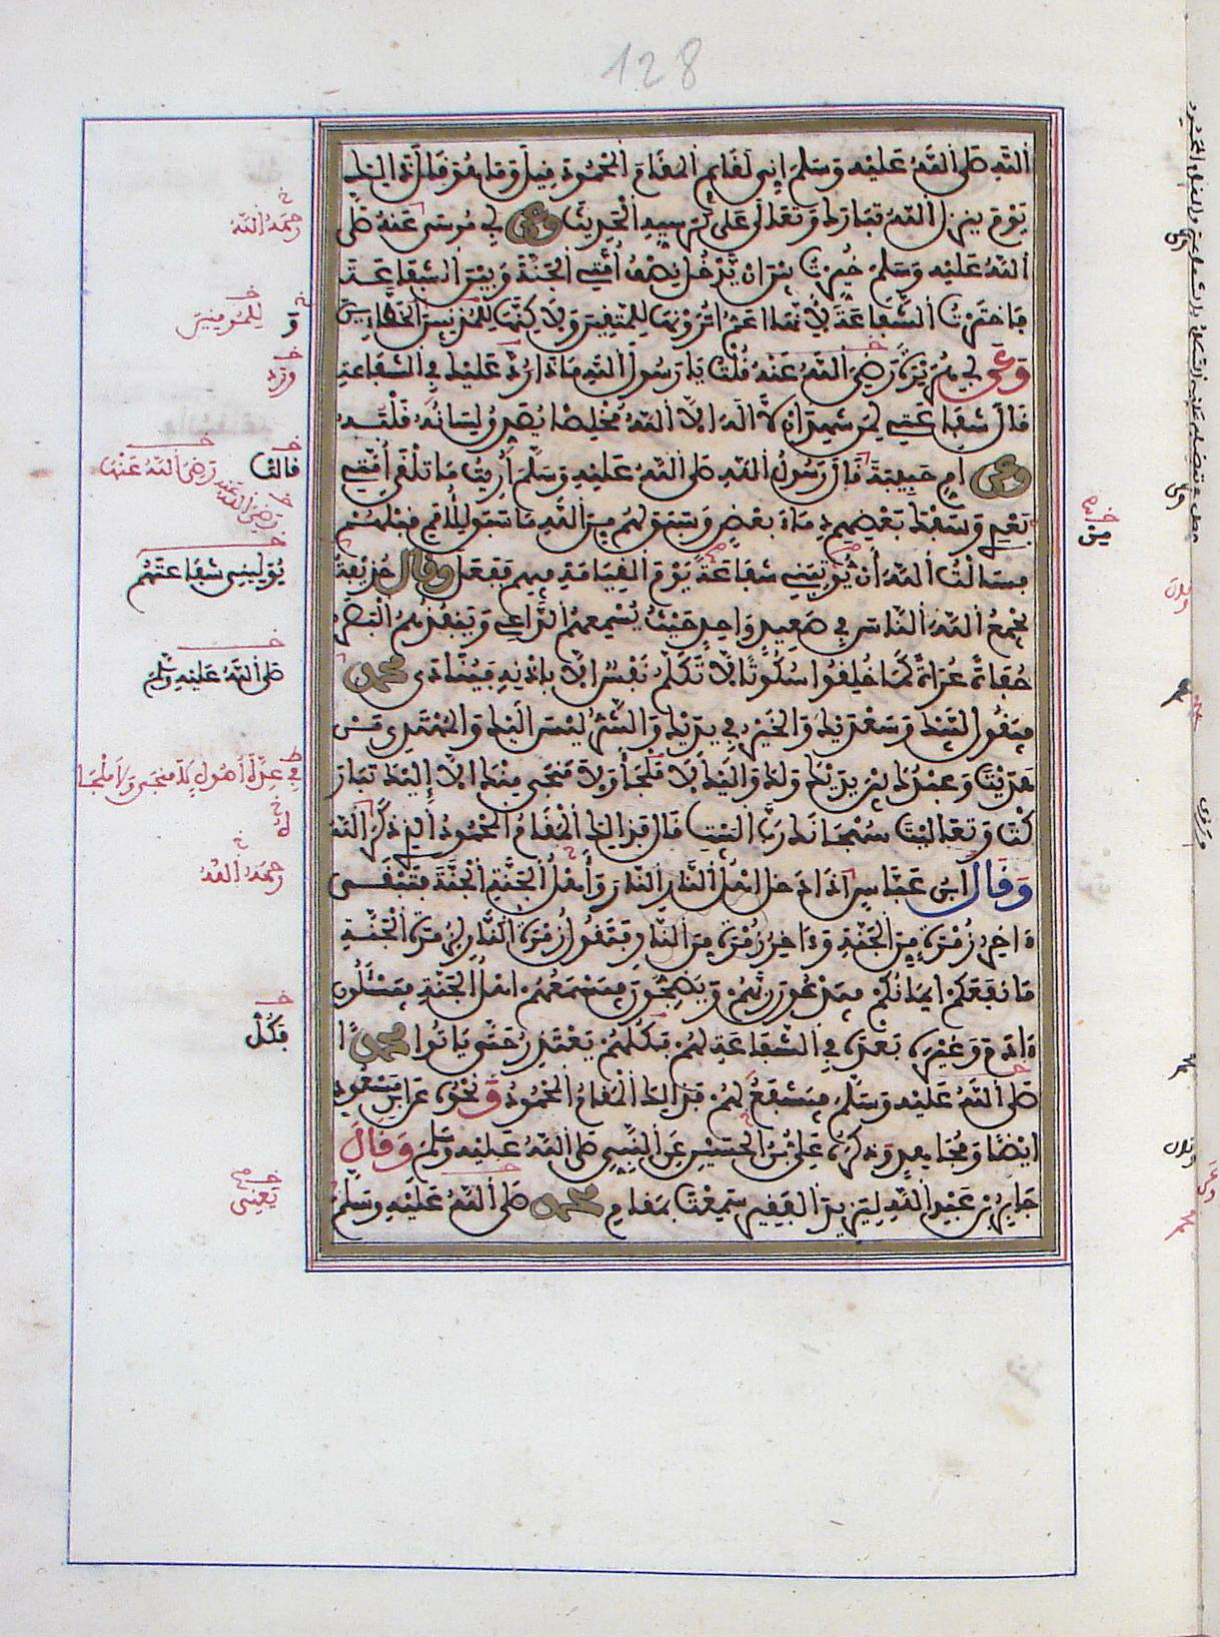 128
اللَّهِ صَلَّى اللَّهُ عَلَيْهِ وَسَلَّمَ إِنِّي لَقَائِمٌ الْمَقَامَ الْمَحْمُودَ قِيلَ وَمَا هُوَ قَالَ ذَالِكَ
يَوْمَ يَنْزِلُ اللَّهُ تَبَارَكَ وَتَعَالَى عَلَى كُرْسِيِّهِ الْحَدِيثَ وَعَنْ أَبِي مُوسَى عَنْهُ صَلَّى
اللَّهُ عَلَيْهِ وَسَلَّمَ خُيِّرْتُ بَيْنَ أَنْ يَدْخُلَ نِصْفُ أُمَّتِي الْجَنَّةَ وَبَيْنَ الشَّفَاعَةِ
فَاخْتَرْتُ الشَّفَاعَةَ لِأَنَّهَا أَعَمُّ أَتُرَوْنَهَا لِلْمُتَّقِينَ وَلَاكِنَّهَا لِلْمُذْنِبِينَ الْخَطَّائِينَ
وَعَنْ أَبِي هُرَيْرَةَ رَضِيَ اللَّهُ عَنْهُ قُلْتُ يَا رَسُولَ اللَّهِ مَاذَا رُدَّ عَلَيْكَ فِي الشَّفَاعَةِ
قَالَ شَفَاعَتِي لِمَنْ شَهِدَ أَنْ لَّا إِلَهَ إِلَّا اللَّهُ مُخْلِصًا يُصَدِّقُ لِسَانَهُ قَلْبُهُ
وَعَنْ أُمِّ حَبِيبَةَ قَالَ رَسُولُ اللَّهِ صَلَّى اللَّهُ عَلَيْهِ وَسَلَّمَ أُرِيتُ مَا تَلْقَى أُمَّتِي
بَعْدِي وَسَفْكَ بَعْضِهِمْ دِمَاءَ بَعْضٍ وَسَبَقَ لَهُمْ مِنَ اللَّهِ مَا سَبَقَ لِلْأُمَمِ قَبْلَهُمْ
فَسَأَلْتُ اللَّهَ أَنْ يُؤْتِيَنِي شَفَاعَةً يَوْمَ الْقِيَامَةِ فِيهِمْ فَفَعَلَ وَقَالَ حُذَيْفَةُ
يَجْمَعُ اللَّهُ النَّاسَ فِي صَعِيدٍ وَاحِدٍ حَيْثُ يُسْمِعُهُمُ الدَّاعِي وَيَنْفُذُهُمُ الْبَصَرُ
حُفَاةً عُرَاةً كَمَا خُلِقُوا سُكُوتًا لَا تَكَلَّمُ نَفْسٌ إِلَّا بِإِذْنِهِ فَيُنَادَى مُحَمَّدٌ
فَيَقُولُ لَبَّيْكَ وَسَعْدَيْكَ وَالْخَيْرُ فِي يَدَيْكَ وَالشَّرُّ لَيْسَ إِلَيْكَ وَالْمُهْتَدِي مَنْ
هَدَيْتَ وَعَبْدُكَ بَيْنَ يَدَيْكَ وَلَكَ وَإِلَيْكَ لَا مَلْجَأَ وَلَا مَنْجَى مِنْكَ إِلَّا إِلَيْكَ تَبَارَ
كْتَ وَتَعَالَيْتَ سُبْحَانَكَ رَبَّ الْبَيْتِ قَالَ فَذَالِكَ الْمَقَامُ الْمَحْمُودُ الَّذِي ذَكَرَ اللَّهُ
وَقَالَ ابْنُ عَبَّاسٍ إِذَا دَخَلَ أَهْلُ النَّارِ النَّارَ وَأَهْلُ الْجَنَّةِ الْجَنَّةَ فَتَبْقَى
ءَاخِرُ زُمْرَةٍ مِنَ الْجَنَّةِ وَءَاخِرُ زُمْرَةٍ مِنَ النَّارِ فَتَقُولُ زُمْرَةُ النَّارِ لِزُمْرَةِ الْجَنَّةِ
مَا نَفَعَكُمْ إِيمَانُكُمْ فَيَدْعُونَ رَبَّهُمْ وَيَضِجُّونَ فَيَسْمَعُهُمْ أَهْلُ الْجَنَّةِ فَيَسْأَلُونَ
ءَادَمَ وَغَيْرَهُ بَعْدَهُ فِي الشَّفَاعَةِ لَهُمْ فَكُلُّهُمْ يَعْتَذِرُ حَتَّى يَاتُوا مُحَمَّدًا
صَلَّى اللَّهُ عَلَيْهِ وَسَلَّمَ فَيَشْفَعُ لَهُمْ فَذَالِكَ الْمَقَامُ الْمَحْمُودُ وَنَحْوُهُ عَنِ ابْنِ مَسْعُودٍ
أَيْضًا وَمُجَاهِدٍ وَذَكَرَهُ عَلِيُّ بْنُ الْحُسَيْنِ عَنِ النَّبِيِّ صَلَّى اللَّهُ عَلَيْهِ وَسَلَّمَ وَقَالَ
جَابِرُ بْنُ عَبْدِ اللَّهِ لِيَزِيدَ الْفَقِيرِ سَمِعْتَ بِمَقَامِ مُحَمَّدٍ صَلَّى اللَّهُ عَلَيْهِ وَسَلَّمَ
رَحِمَهُ اللَّهُ
لِلْمُومِنِينَ
وَرَدَ
قَالَتْ رَضِيَ اللَّهُ عَنْهَا
رَضِيَ اللَّهُ عَنْهُ
يُوَلِّيَنِي شَفَاعَتَهُمْ
صَلَّى اللَّهُ عَلَيْهِ وَسَلَّمَ
رَحِمَهُ اللَّهُ
فَكُلٌّ
يَعْنِي
مِنْ